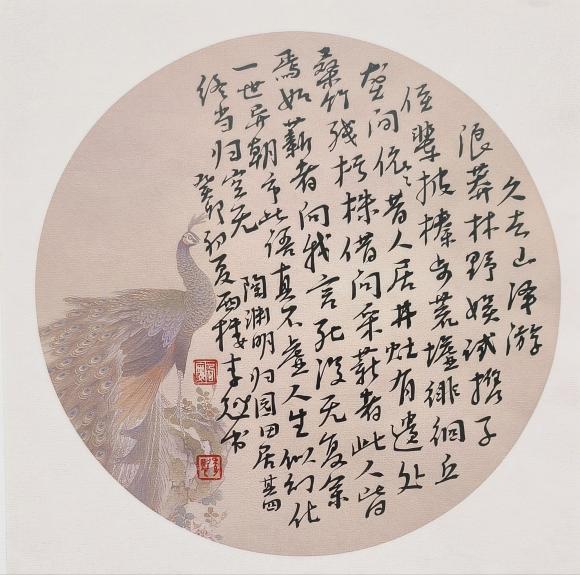 久去山泽游
浪莽林野娱试携子
侄辈披榛步荒墟徘徊丘
垄间依々昔人居井灶有遗处
桑竹残朽株借问采薪者此人皆
焉如薪者向我言死没无复余
一世异朝市此语真不虚人生似幻化
终当归空无
陶渊明归园田居其四
癸卯初夏西楼李书